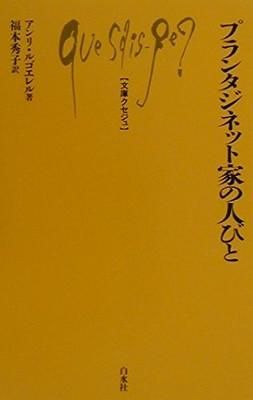 プランタジネット家の人びと
Que sais-je?
【文庫クセジュ】
アンリ・ルゴエレル著
福本秀子訳
白水社